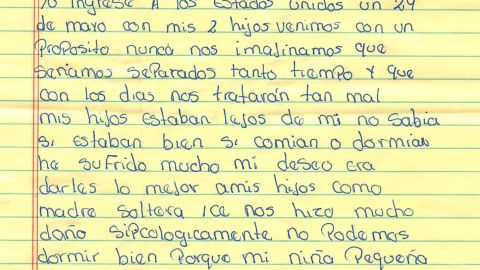 Yo ingrese A los Estados unidos un 24
de mayo con mis 2 hijos venimos con un
Proposito nunca nos imaginamos que
seriamos separados tanto tiempo y que
con los dias nos tratarán tan mal
mis hijos estaban lejos de mi no sabia
si estaban bien si comian o dormian
he sufrido mucho mi deseo era
darles lo mejor amis hijos como
madre soltera ice nos hizo mucho
daño sipcologicamente no Podemos
dormir bien Porque mi niña Pequeña